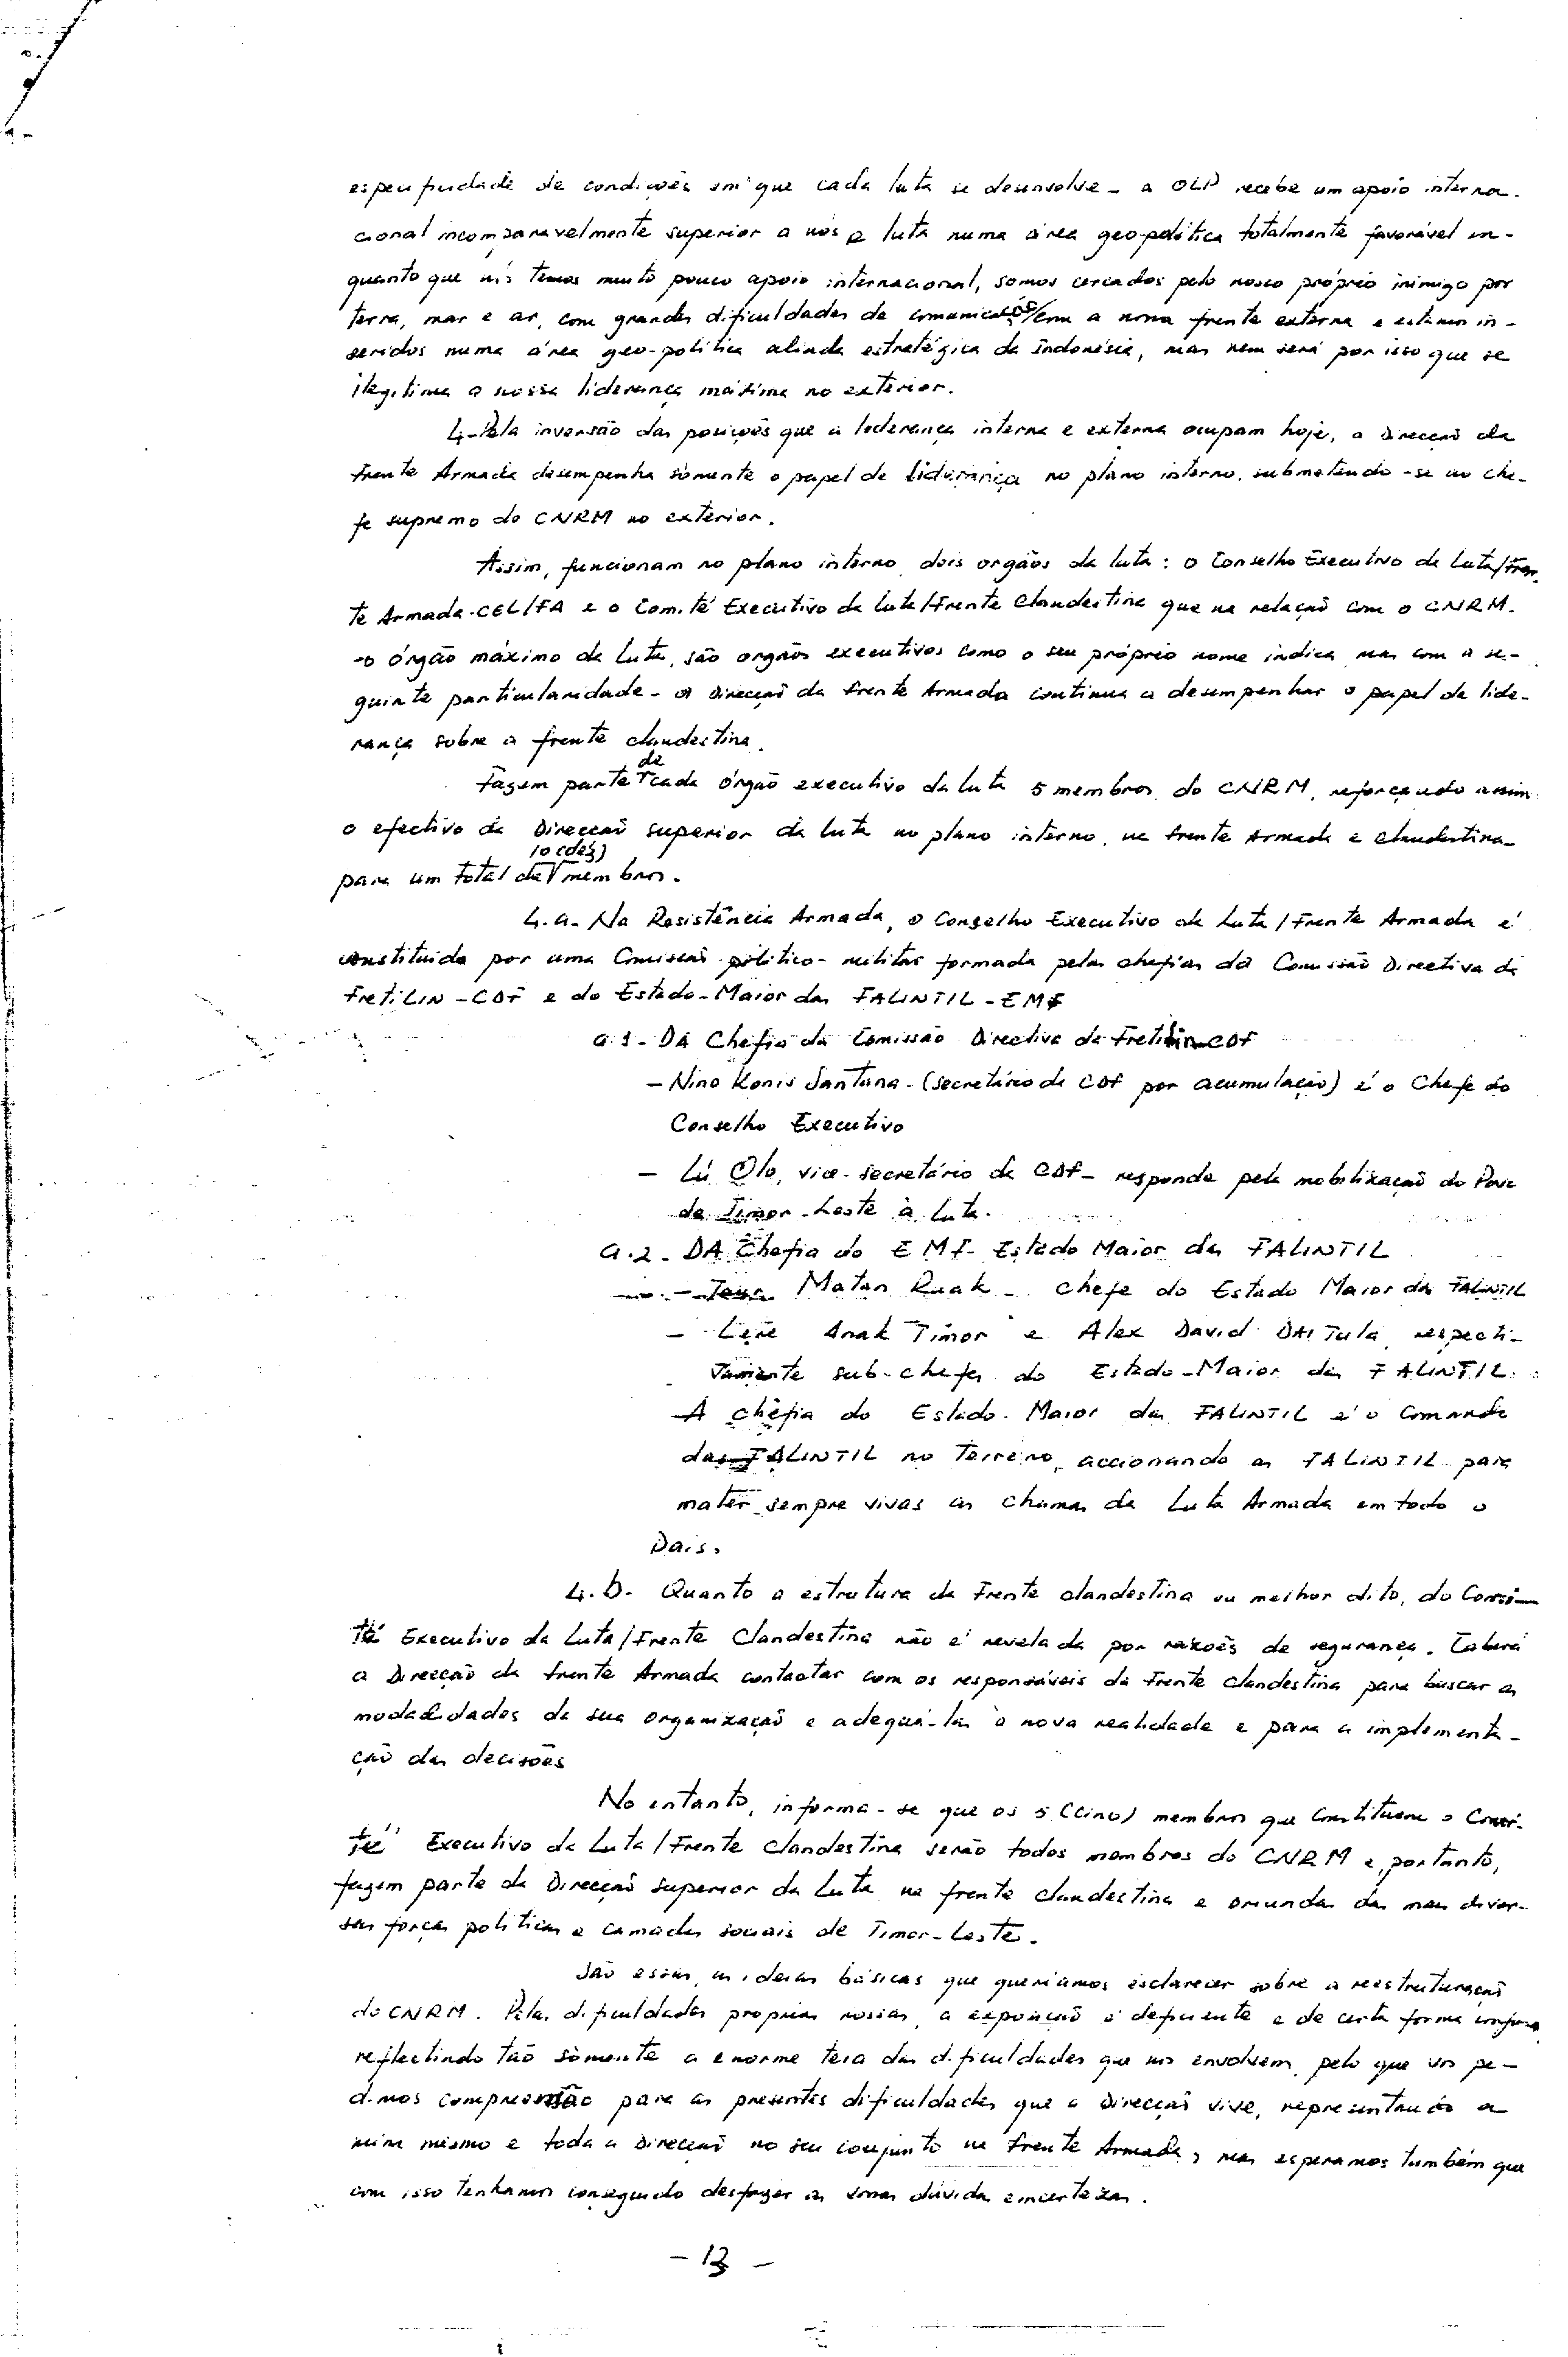 especificidade de condições em que cada luta se desenvolve - a OLP recebe um apoio interna-
cional incomparavelmente superior a nós e luta numa área geo-política totalmente favorável en-
quanto que nós temos muito pouco apoio internacional, somos cercados pelo nosso próprio inimigo por
terra, mar e ar, com grandes dificuldades de comunicação/com a nossa frente externa e estamos in-
seridos numa área geo-política aliada estratégica da Indonésia, mas nem será por isso que se
ilegitima a nossa liderança máxima no exterior.
4-Pela inversão das posições que a liderança interna e externa ocupam hoje, a Direcção da
Frente Armada desempenha sòmente o papel de liderança no plano interno, submetendo-se ao che-
fe supremo do CNRM no exterior.
Assim, funcionam no plano interno dois orgãos da luta: o Conselho Executivo da Luta/Fren-
te Armada-CEL/FA e o Comité Executivo da Luta/Frente Clandestina que na relação com o CNRM.
-o órgão máximo da luta, são orgãos executivos como o seu próprio nome indica mas com a se-
guinte particularidade - a Direcção da Frente Armada continua a desempenhar o papel de lide-
rança sobre a frente clandestina.
Fazem parte de cada órgão executivo da luta 5 membros do CNRM, reforçando assim
o efectivo da Direcção superior da luta no plano interno, na Frente Armada e Clandestina-
para um total de 10 (dez) membros.
4.a. Na Resistência Armada, o Conselho Executivo da Luta/Frente Armada é
constituido por uma Comissão politico-militar formada pelas chefias da Comissão Directiva da
Fretilin-CDF e do Estado-Maior das FALINTIL-EMF
a.1- DA Chefia da Comissão Directiva da Fretilin-CDF
- Nino Konis Santana-(Secretário da CDF por acumulação) é o Chefe do
Conselho Executivo
- Lú Olo, vice-secretário da CDF- responde pela mobilização do Povo
de Timor-Leste à luta.
a.2- DA Chefia do EMF- Estado Maior das FALINTIL
- Taur Matan Ruak - Chefe do Estado Maior das FALINTIL
- Lere Anak Timor e Alex David DAITula, respecti-
vamente sub-chefes do Estado-Maior das FALINTIL.
A chefia do Estado-Maior das FALINTIL é o Comando
das FALINTIL no Terreno, accionando as FALINTIL para
mater sempre vivas as chamas da Luta Armada em todo o
País.
4.b. Quanto a estrutura da Frente clandestina ou melhor dito, do Comi-
té Executivo da Luta/Frente Clandestina não é revelada por razões de segurança. Caberá
a Direcção da Frente Armada contactar com os responsáveis da Frente Clandestina para buscar as
modalidades da sua organização e adequá-las à nova realidade e para a implementa-
ção das decisões
No entanto, informa-se que os 5 (cinco) membros que constituem o Comi-
té Executivo da Luta/Frente Clandestina serão todos membros do CNRM e, portanto,
fazem parte da Direcção superior da Luta na frente clandestina e oriundas das mais diver-
sas forças politicas e camadas sociais de Timor-Leste.
São essas as ideias básicas que queriamos esclarecer sobre a reestruturação
do CNRM. Pelas dificuldades proprias nossas, a exposição é deficiente e de certa forma confusa
reflectindo tão sòmente a enorme teia das dificuldades que nos envolvem, pelo que vos pe-
dimos compreensão para as presentes dificuldades que a Direcção vive, representando a
mim mesmo e toda a Direcção no seu conjunto na Frente Armada, mas esperamos também que
com isso tenhamos conseguido desfazer as vossas dúvidas e incertezas.
- 13 -